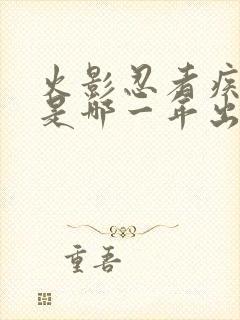 火影忍者疾
是哪一年出
重吾